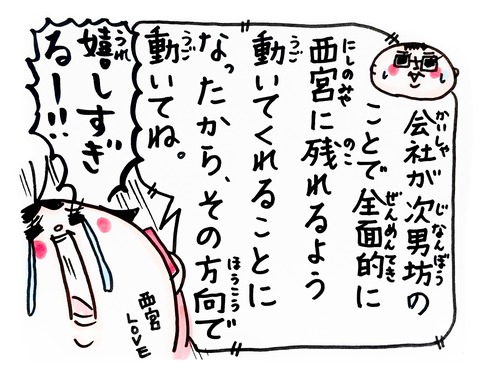 会社が次男坊の
ことで全面的に
西宮に残れるよう
動いてくれることに
なったから、その方向で
動いてね。
嬉しすぎ
るー!!
西宮
LOVE